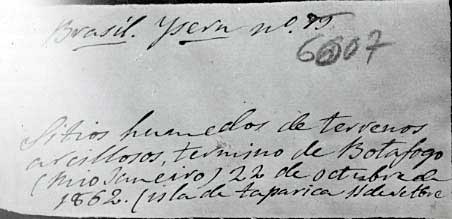 Brasil. Ysern nº. 85
6607
Sitios humedos de terrenos
arcillosos, termino de Botafogo
(Rio Janeiro) 22 de octubre de
1862. (isla de taparica 11 de